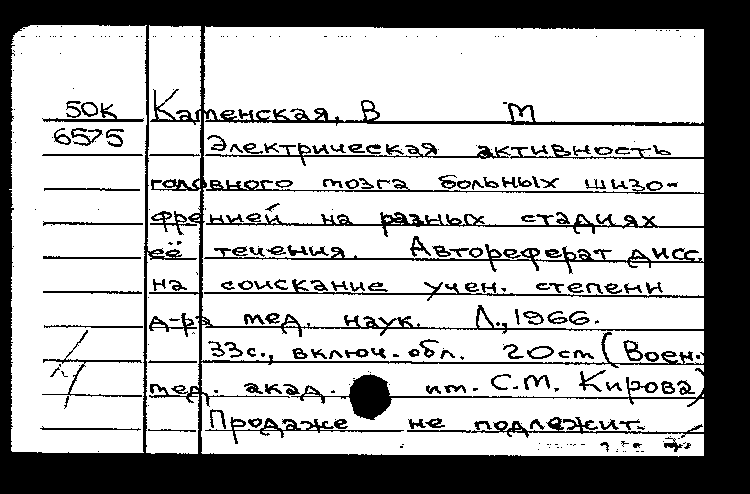 50К Каменская, В М
6575 Электрическая активность
головного мозга больных шизо-
френией на разных стадиях
её течения. Автореферат дисс.
на соискание учен. степени
д-ра мед. наук. Л., 1966.
33с., включ. обл. 20см (Воен.-
мед. акад. им. С.М. Кирова)
Продаже не подлежит.